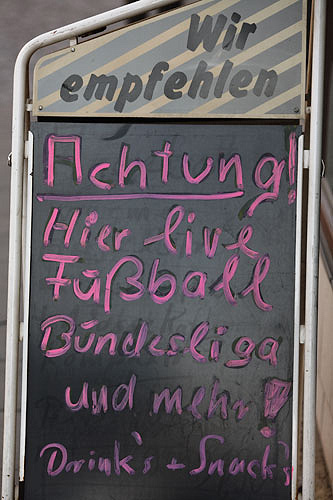 Wir
empfehlen
Achtung!
Hier live
Fußball
Bundesliga
und mehr!
Drink's + Snack's